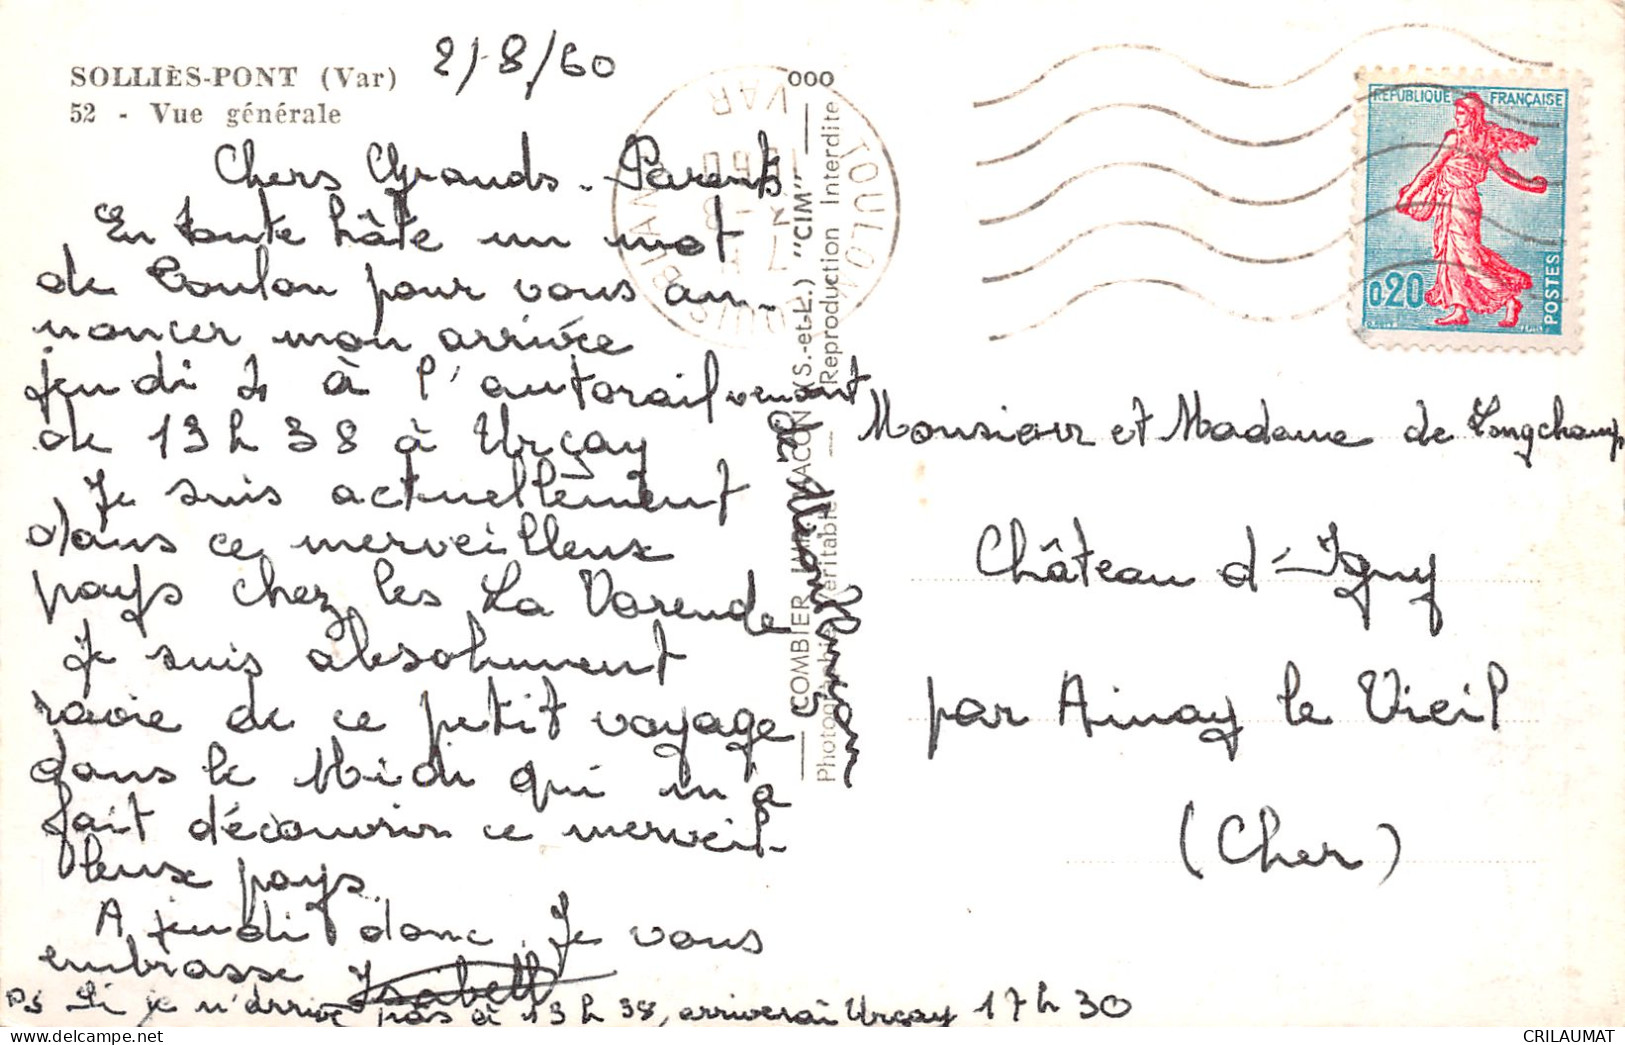 SOLLIÈS-PONT (Var)
52 - Vue générale
2/8/60
Chers Grands-Parents
En toute hâte un mot
de Toulon pour vous an-
noncer mon arrivée
jeudi 4 à l'autorail venant
de Montluçon
de 13 h 38 à Urçay
Je suis actuellement
dans ce merveilleux
pays chez les La Varende
Je suis absolument
ravie de ce petit voyage
dans le Midi qui m'a
fait découvrir ce merveil-
leux pays.
A jeudi donc. Je vous
embrasse Isabelle
PS Si je n'arrive pas à 13 h 38, arriverai Urçay 17 h 30
COMBIER IMP. MACON (S.-et-L.) "CIM"
Photographie véritable — Reproduction Interdite
TOULON
VAR
1960
RÉPUBLIQUE FRANÇAISE
0,20
POSTES
Monsieur et Madame de Longchamp
Château d'Igny
par Ainay le Vieil
(Cher)
CRILAUMAT